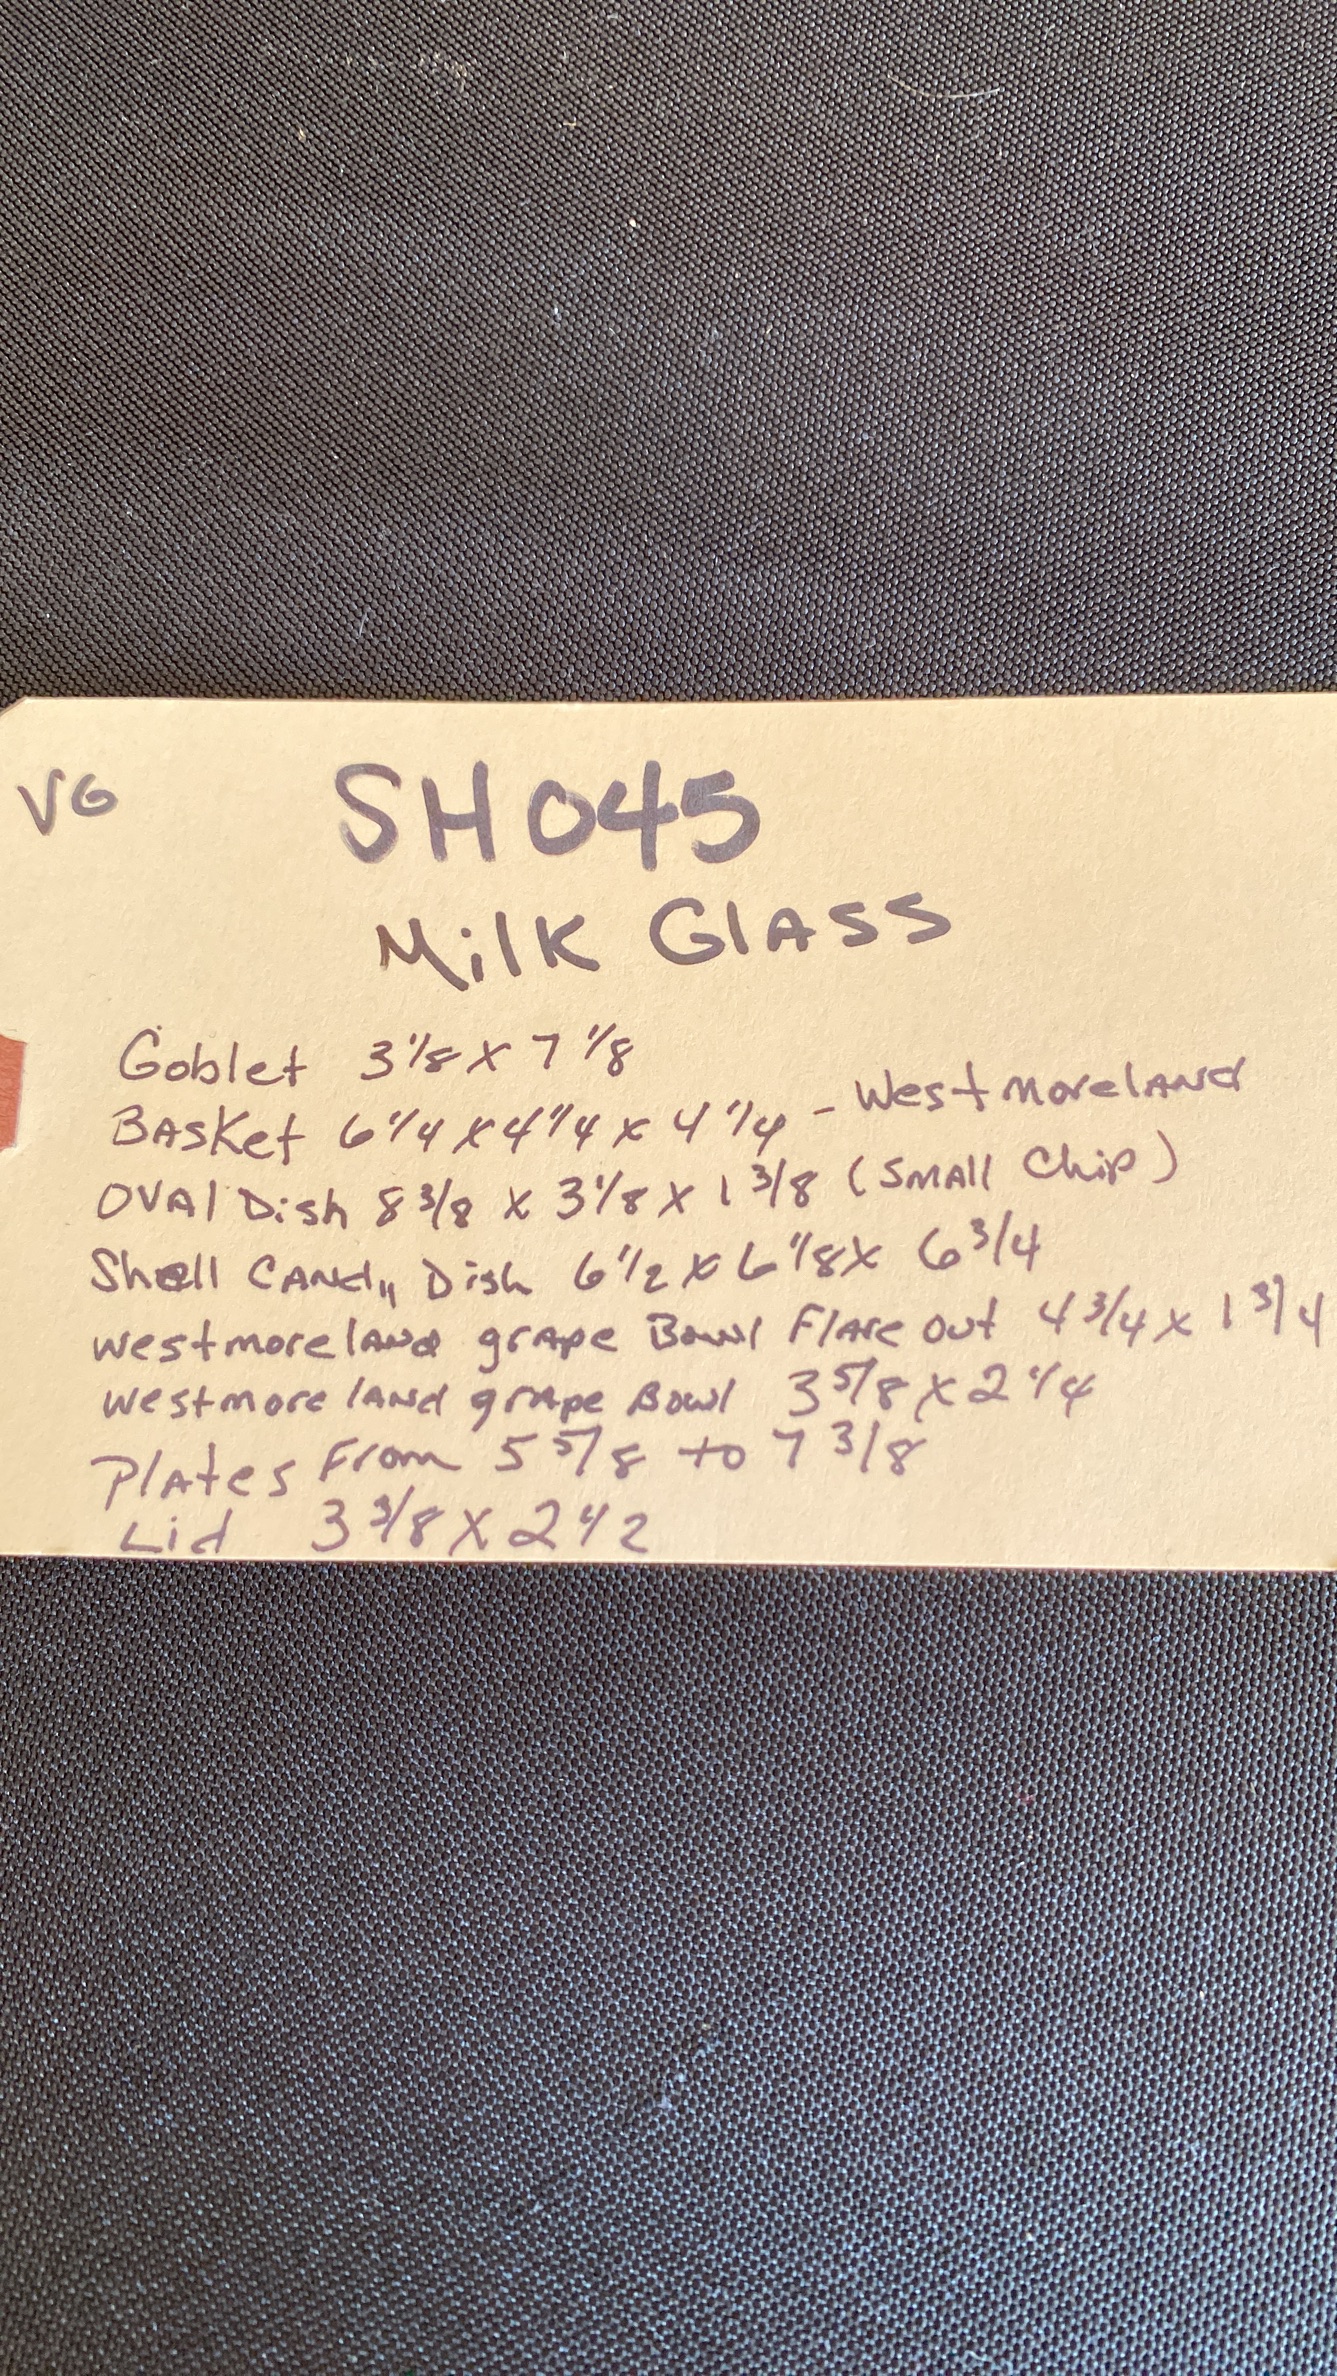 VG
SH045
Milk Glass
Goblet 3 1/8 x 7 1/8
Basket 6 1/4 x 4 1/4 x 4 1/4 - Westmoreland
Oval Dish 8 3/8 x 3 1/8 x 1 3/8 (Small Chip)
Shell Candy Dish 6 1/2 x 6 1/8 x 6 3/4
Westmoreland grape Bowl Flare out 4 3/4 x 1 3/4
Westmoreland grape Bowl 3 5/8 x 2 1/4
Plates From 5 5/8 to 7 3/8
Lid 3 3/8 x 2 1/2